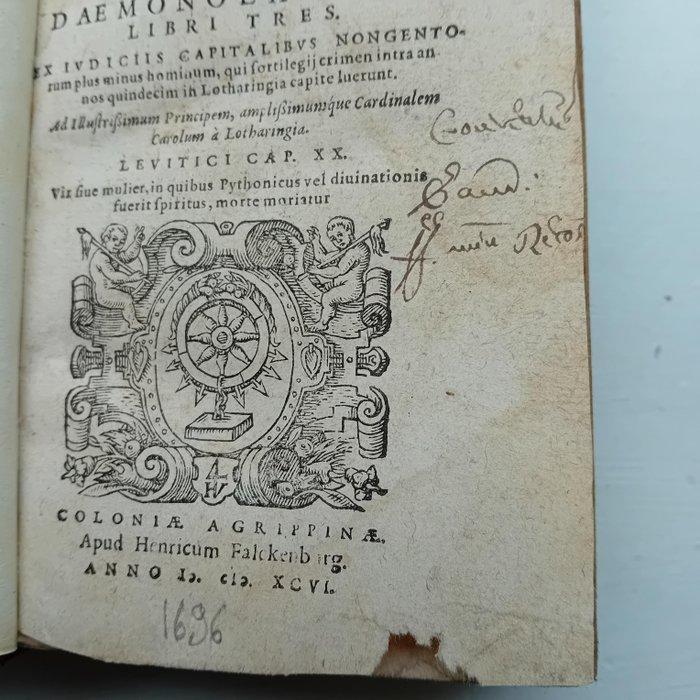 DAEMONOLA
LIBRI TRES.
EX IVDICIIS CAPITALIBVS NONGENTO-
rum plus minus hominum, qui sortilegij crimen intra an
nos quindecim in Lotharingia capite luerunt.
Ad Illustrißimum Principem, amplißimumque Cardinalem
Carolum à Lotharingia.
LEVITICI CAP. XX.
Vir siue mulier, in quibus Pythonicus vel diuinationis
fuerit spiritus, morte moriatur
COLONIÆ AGRIPPINÆ,
Apud Henricum Falckenburg.
ANNO Iↄ. cIↄ. XCVI.
1696